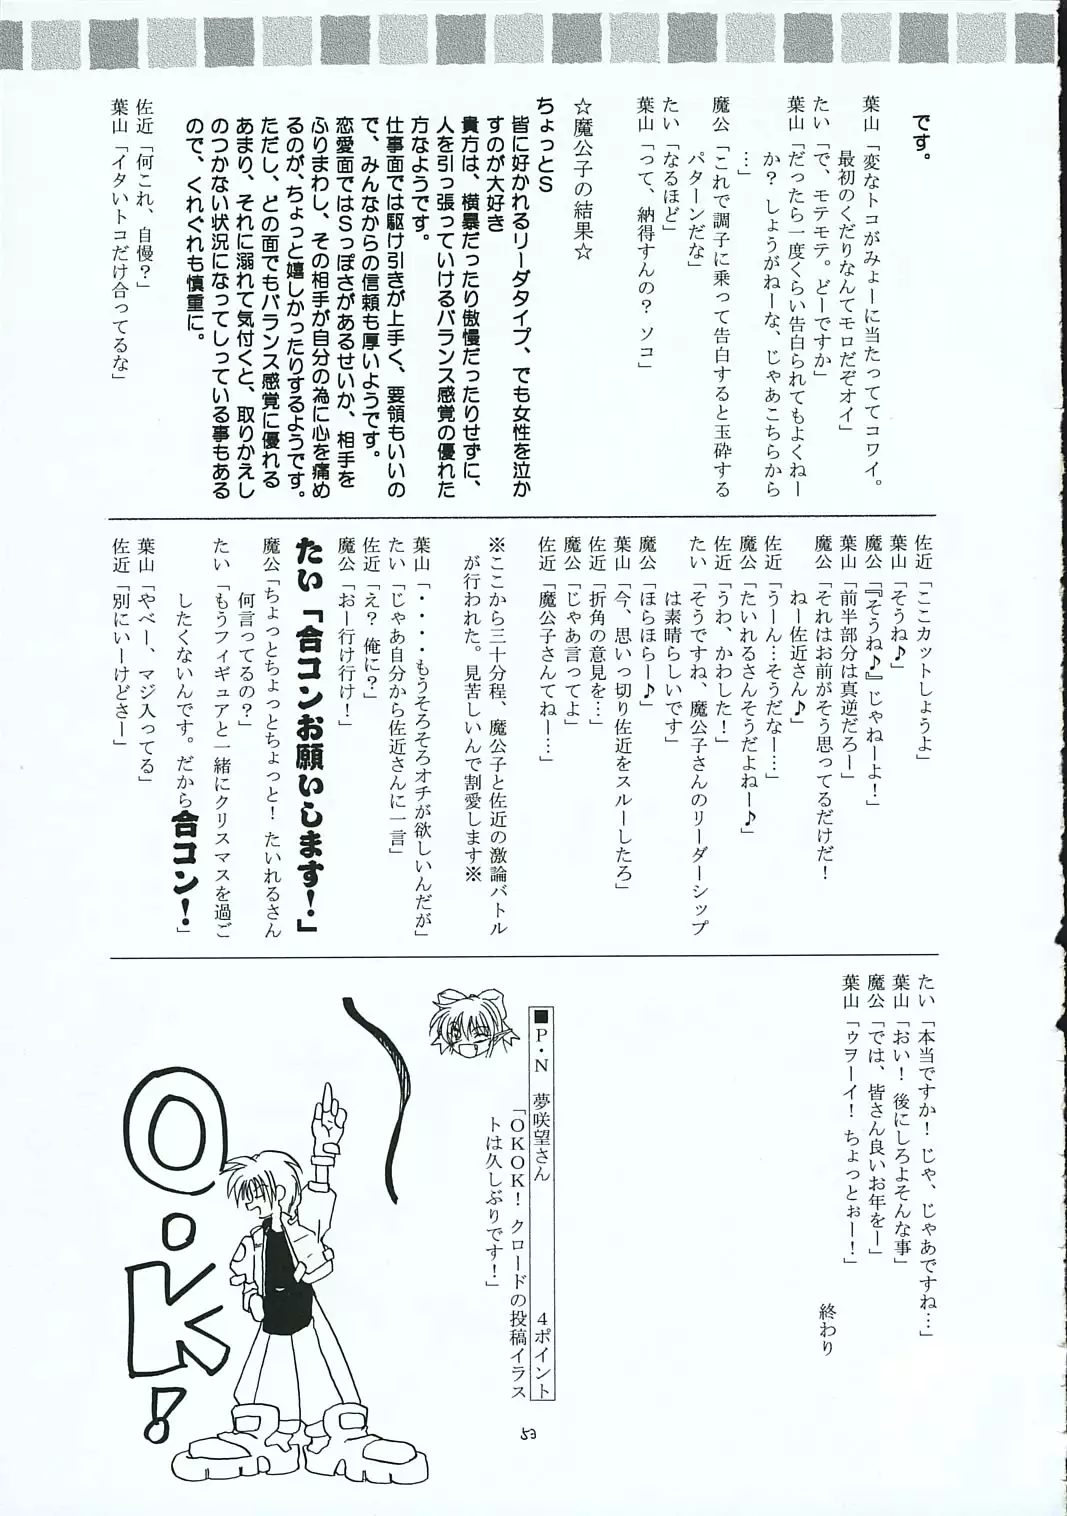 です。
葉山「変なトコがみょーに当たっててコワイ。
最初のくだりなんてモロだぞオイ」
たい「で、モテモテ。どーですか」
葉山「だったら一度くらい告白られてもよくねー
か？しょうがねーな、じゃあこちらから
…」
魔公「これで調子に乗って告白すると玉砕する
パターンだな」
たい「なるほど」
葉山「って、納得すんの？ソコ」
☆魔公子の結果☆
ちょっとS
皆に好かれるリーダタイプ、でも女性を泣か
すのが大好き
貴方は、横暴だったり傲慢だったりせずに、
人を引っ張っていけるバランス感覚の優れた
方なようです。
仕事面では駆け引きが上手く、要領もいいの
で、みんなからの信頼も厚いようです。
恋愛面ではSっぽさがあるせいか、相手を
ふりまわし、その相手が自分の為に心を痛め
るのが、ちょっと嬉しかったりするようです。
ただし、どの面でもバランス感覚に優れる
あまり、それに溺れて気付くと、取りかえし
のつかない状況になってしっている事もある
ので、くれぐれも慎重に。
佐近「何これ、自慢？」
葉山「イタいトコだけ合ってるな」
佐近「ここカットしょうよ」
葉山「そうね♪」
魔公「『そうね♪』じゃねーよ！」
葉山「前半部分は真逆だろー」
魔公「それはお前がそう思ってるだけだ！
ねー佐近さん♪」
佐近「うーん…そうだなー…」
魔公「たいれるさんそうだよねー♪」
佐近「うわ、かわした！」
たい「そうですね、魔公子さんのリーダーシップ
は素晴らしいです」
魔公「ほらほらー♪」
葉山「今、思いっ切り佐近をスルーしたろ」
佐近「折角の意見を…」
魔公「じゃあ言ってよ」
佐近「魔公子さんてねー…」
※ここから三十分程、魔公子と佐近の激論バトル
が行われた。見苦しいんで割愛します※
葉山「・・・・もうそろそろオチが欲しいんだが」
たい「じゃあ自分から佐近さんに一言」
佐近「え？俺に？」
魔公「おー行け行け！」
たい「合コンお願いします！」
魔公「ちょっとちょっとちょっと！たいれるさん
何言ってるの？」
たい「もうフィギュアと一緒にクリスマスを過ご
したくないんです。だから合コン！」
葉山「やべー、マジ入ってる」
佐近「別にいーけどさー」
たい「本当ですか！じゃ、じゃあですね…」
葉山「おい！後にしろよそんな事」
魔公「では、皆さん良いお年をー」
葉山「ゥヲーイ！ちょっとぉー！」
終わり
■P・N 夢咲望さん 4ポイント
「OKOK！クロードの投稿イラス
トは久しぶりです！」
O.K!
53